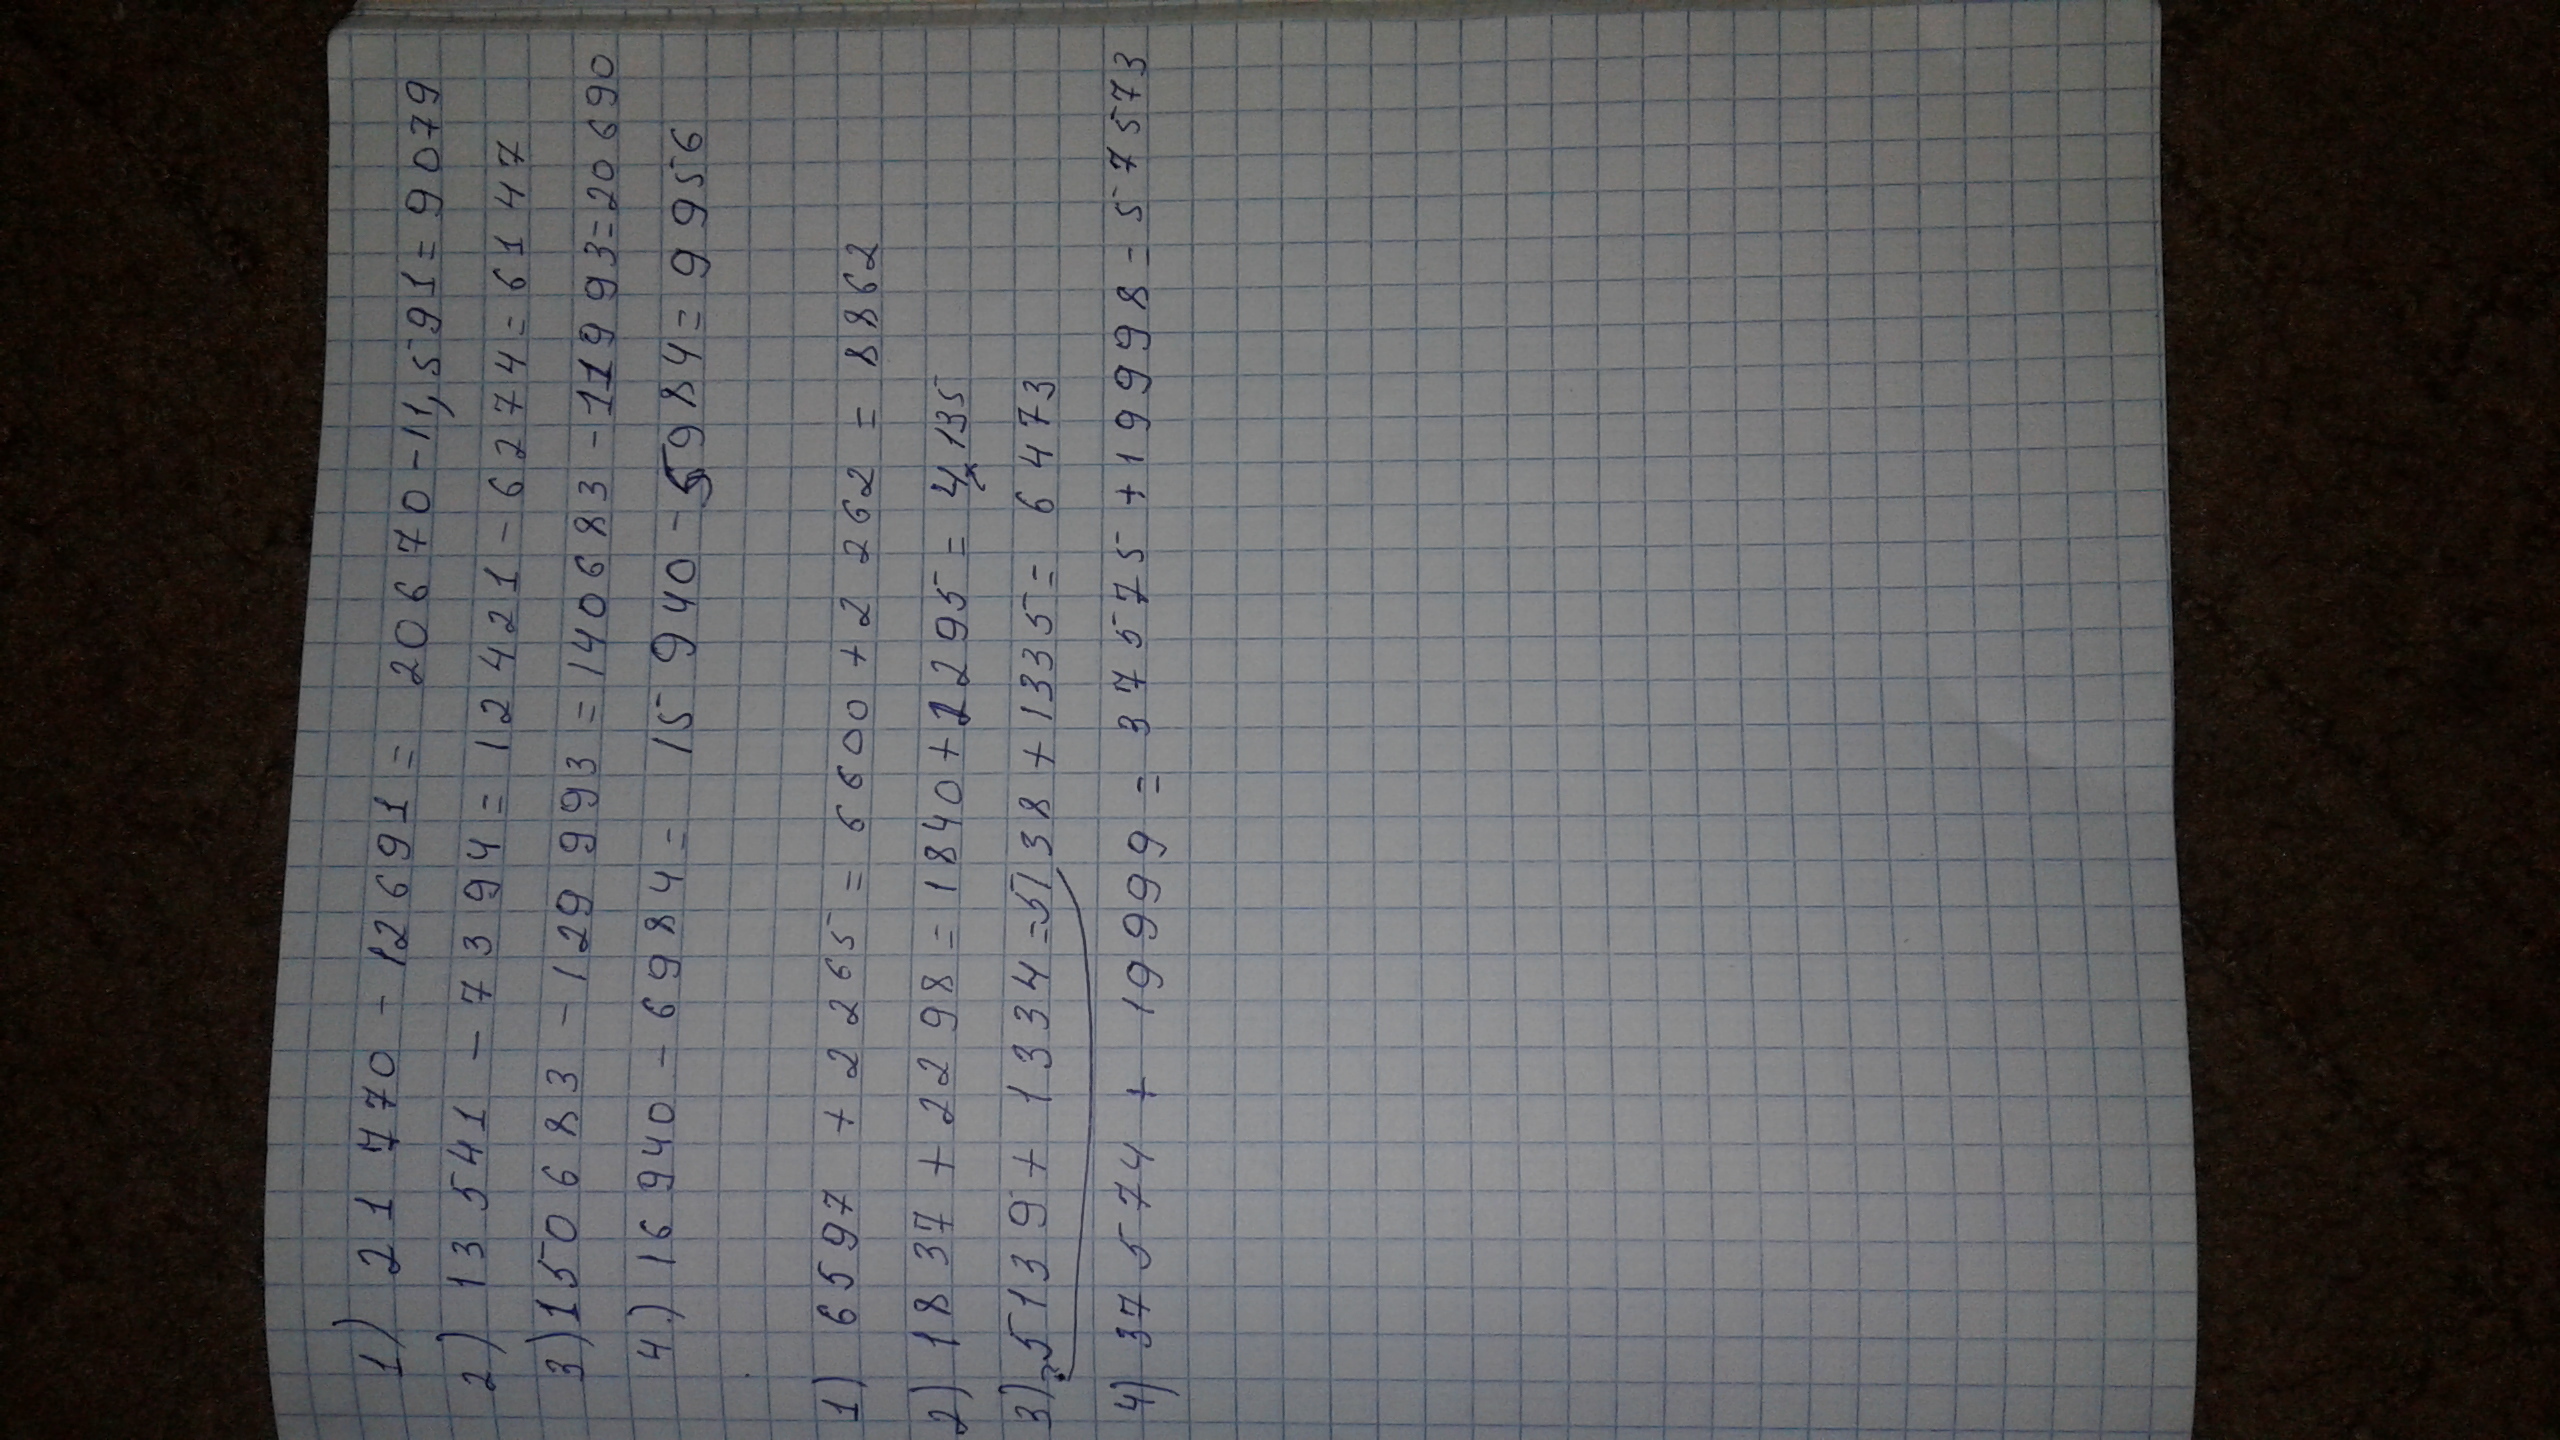 1) 21 770 - 12691 = 20670 - 11,591 = 9079
2) 13 541 - 7394 = 12421 - 6274 = 61 47
3) 150683 - 129 993 = 140683 - 119 993 = 20 690
4.) 16 940 - 6984 = 15 940 - 5984 = 9 956
1) 6597 + 2265 = 6600 + 2 262 = 8862
2) 1837 + 2298 = 1840 + 2295 = 4 135
3) 5139 + 1334 = 5138 + 1335 = 6 473
4) 37 5574 + 19999 = 37575 + 19998 = 57573